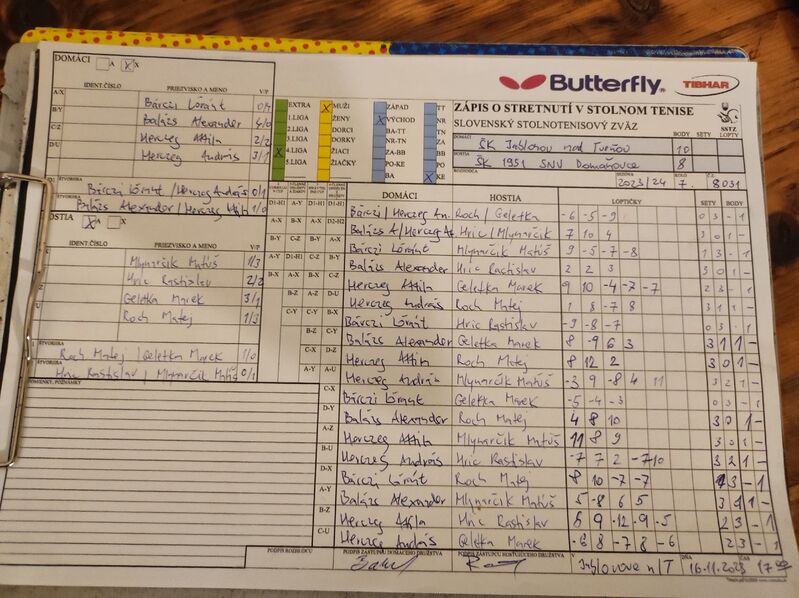 DOMÁCI A X
IDENT.ČÍSLO PRIEZVISKO A MENO V/P
A-X Bárczi Lóránt 0/4
B-Y Balázs Alexander
C-Z Herczeg Attila 2/2
D-U Herczeg András 3/1
ŠTVORHRA
Bárczi Lóránt/Herczeg András 0/1
ŠTVORHRA
Balázs Alexander/Herczeg Attila 1/0
HOSTIA A X
IDENT.ČÍSLO PRIEZVISKO A MENO V/P
Mlynarčik Matúš 1/3
Hric Rastislav 2/2
Geletka Marek 3/1
Roch Matej 1/3
ŠTVORHRA
Roch Matej/Geletka Marek 1/0
ŠTVORHRA
Hric Rastislav/Mlynarčik Matúš 0/1
POMIENKY, POZNÁMKY
EXTRA X MUŽI ZÁPAD TT
1.LIGA ŽENY X VÝCHOD NR
2.LIGA DORCI BA-TT TN
3.LIGA DORKY NR-TN ZA
X 4.LIGA ŽIACI ZA-BB BB
5.LIGA ŽIAČKY PO-KE PO
BA X KE
Butterfly TIBHAR
ZÁPIS O STRETNUTÍ V STOLNOM TENISE
SLOVENSKÝ STOLNOTENISOVÝ ZVÄZ
SSTZ
DOMÁCI BODY SETY LOPTY
ŠK Jablonov nad Turňou 10
HOSTIA
ŠK 1951 SNV Domaňovce 8
ROZHODCA SEZÓNA KOLO Č.Z.
2023/24 7. 8031
DOMÁCI HOSTIA LOPTIČKY SETY BODY
Bárczi/Herczeg An. Roch/Geletka -6 -5 -9 0 3 - 1
Balázs A/Herczeg At. Hric/Mlynarčik 7 10 4 3 0 1 -
Bárczi Lóránt Mlynarčik Matúš 9 -5 -7 -8 1 3 - 1
Balázs Alexander Hric Rastislav 2 2 3 3 0 1 -
Herczeg Attila Geletka Marek 9 10 -4 -7 -7 2 3 - 1
Herczeg András Roch Matej 1 8 -7 8 3 1 1 -
Bárczi Lóránt Hric Rastislav -9 -8 -7 0 3 - 1
Balázs Alexander Geletka Marek 8 -9 6 3 3 1 1 -
Herczeg Attila Roch Matej 8 12 2 3 0 1 -
Herczeg András Mlynarčik Matúš -3 9 -8 4 11 3 2 1 -
Bárczi Lóránt Geletka Marek -5 -4 -3 0 3 - 1
Balázs Alexander Roch Matej 4 8 10 3 0 1 -
Herczeg Attila Mlynarčik Matúš 11 8 9 3 0 1 -
Herczeg András Hric Rastislav -7 7 2 -7 10 3 2 1 -
Bárczi Lóránt Roch Matej 8 10 -7 -7
Balázs Alexander Mlynarčik Matúš 5 -8 6 5 3 1 1 -
Herczeg Attila Hric Rastislav 6 9 -12 -9 -5 2 3 - 1
Herczeg András Geletka Marek -6 8 -7 8 -6 2 3 - 1
PODPIS ROZHODCU PODPIS ZÁSTUPCU DOMÁCEHO DRUŽSTVA PODPIS ZÁSTUPCU HOSŤUJÚCEHO DRUŽSTVA V DŇA ČAS
Jablonove n/T 16.11.2023 17 00